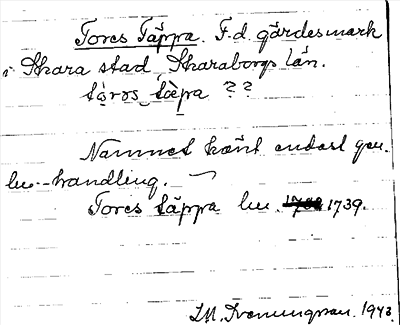 Tores Täppa. F.d. gärdesmark
i Skara stad, Skaraborgs län.
tåros tæpa ??
Namnet känt endast gen.
lm.-handling.
Tores täppa lm. 1739.
1943.